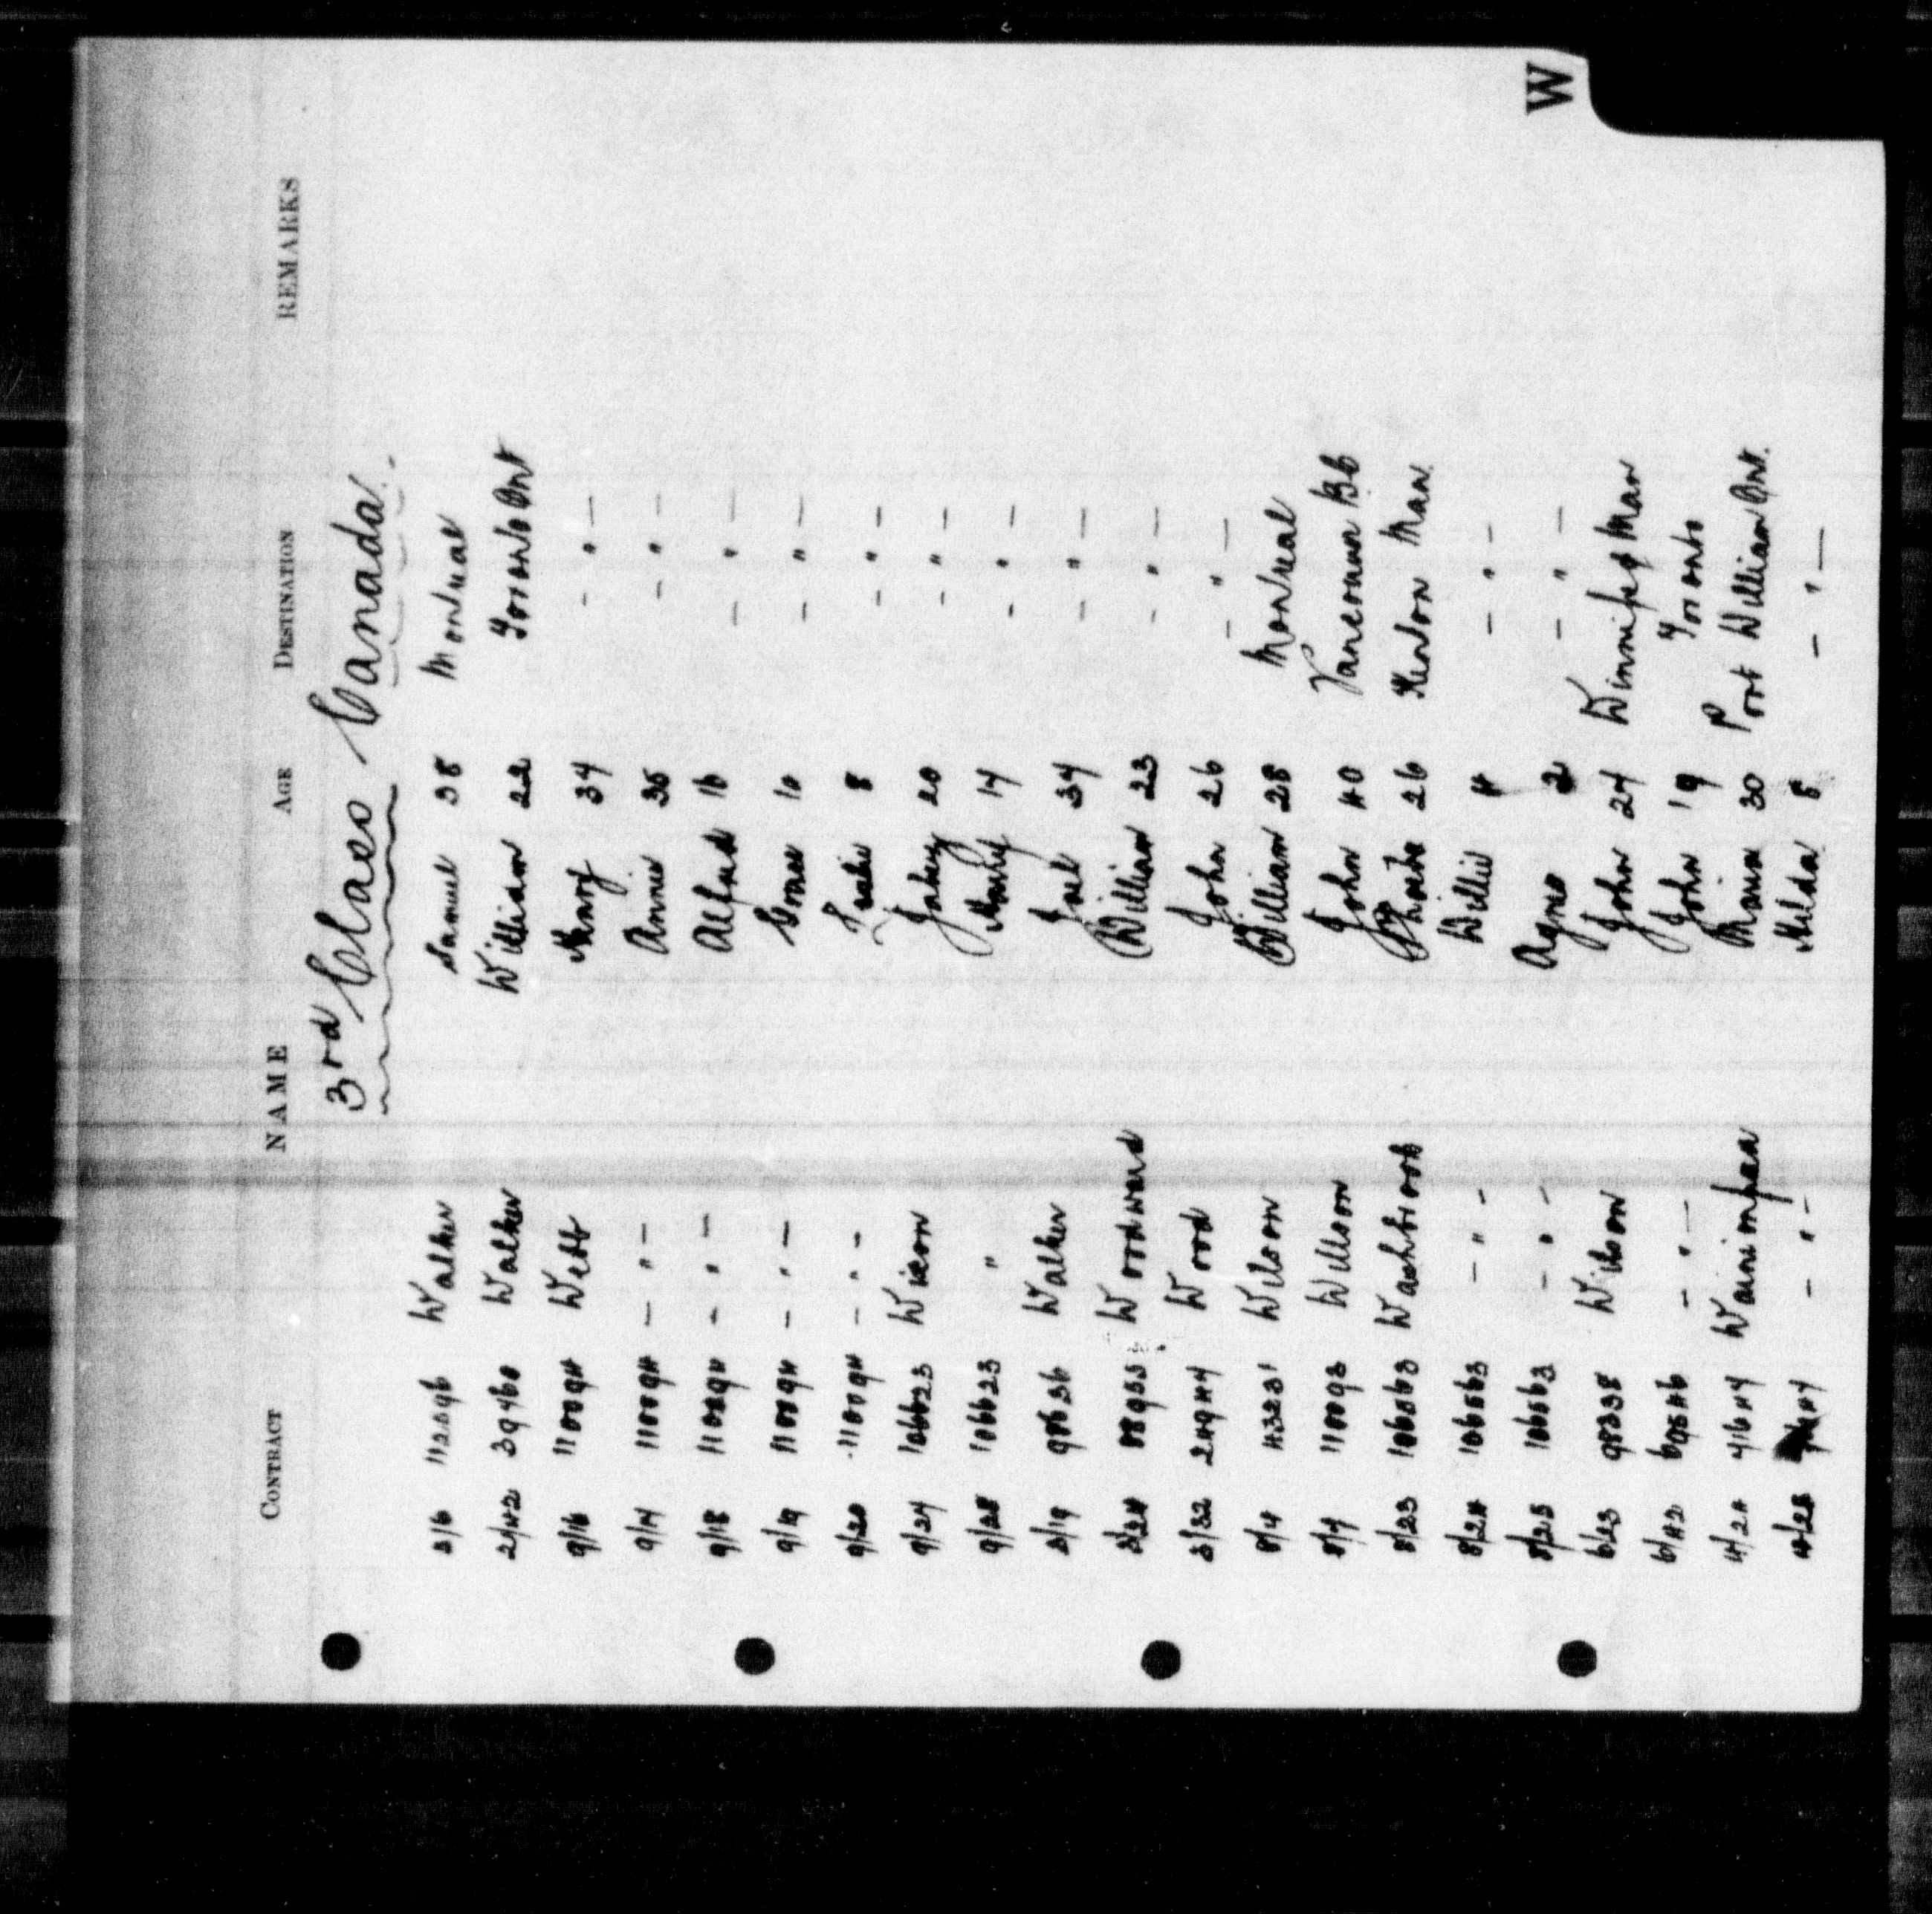 W
CONTRACT NAME AGE DESTINATION REMARKS
3rd Class Canada.
3/6 Walker Samuel 38 Montreal
2/42 39760 Walker William 22 Toronto Ont
9/16 110094 Webb Henry 37 - " -
9/17 110094 - " - Annie 36 - " -
9/18 110094 - " - Alfred 16 - " -
9/19 110094 - " - 10 - " -
9/20 110094 - " - 8 - " -
9/27 106623 20 - " -
9/28 106623 " 17 - " -
3/19 Walker 37 - " -
3/24 Woodward William 23 - " -
3/32 24947 Wood John 26 - " -
8/4 Wilson William 28 Montreal
8/7 110093 Willson John 40 Vancouver BC
8/23 106563 Washbrook Phoebe 26 Man.
8/24 106563 - " - Willie 4 - " -
8/25 106563 - " - Agnes 2 - " -
6/23 98338 Wilson John 27 Winnipeg Man
6/42 - " - John 19 Toronto
4/24 7647 30 Port William Ont.
4/25 - " - Milda 8 - " -